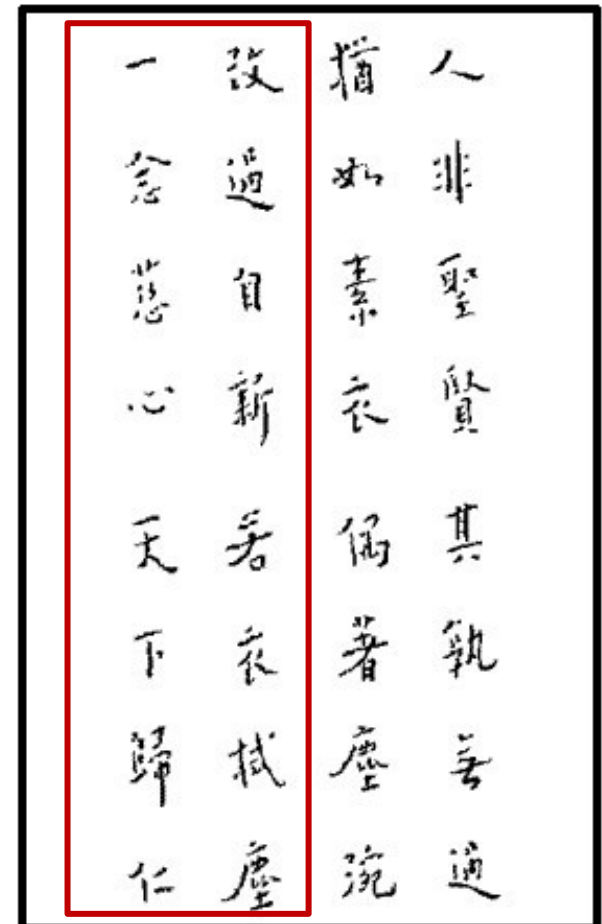 人非聖賢其孰無過
猶如素衣偶著塵涴
改過自新若衣拭塵
一念慈心天下歸仁